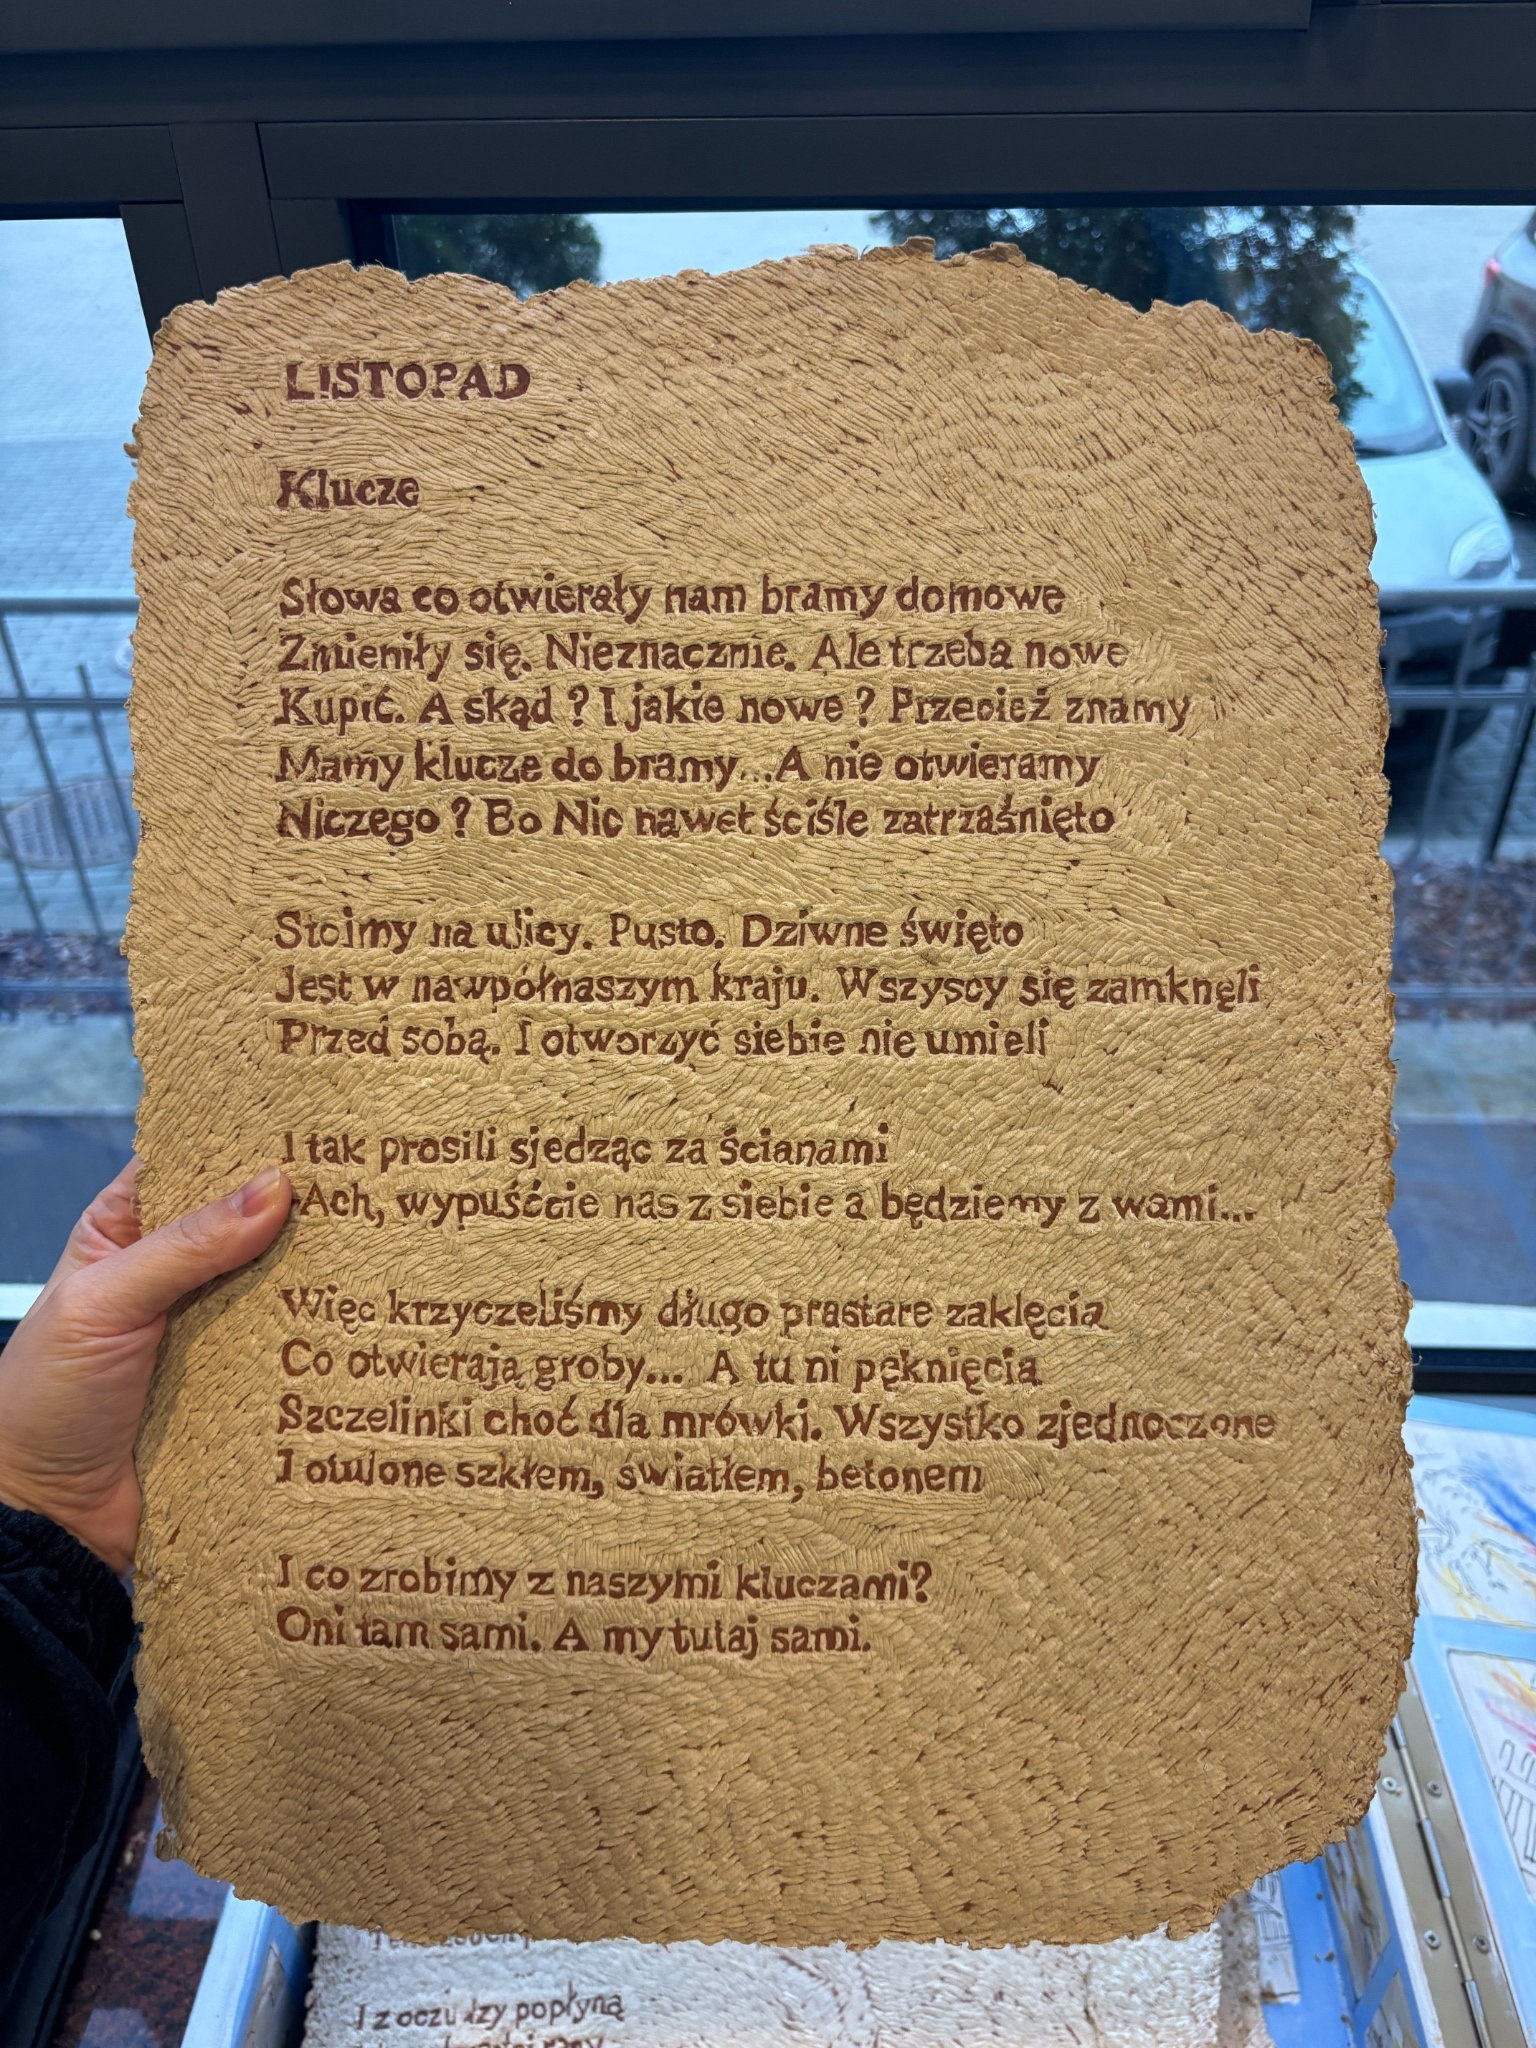 LISTOPAD
Klucze
Słowa co otwierały nam bramy domowe
Zmieniły się. Nieznacznie. Ale trzeba nowe
Kupić. A skąd ? I jakie nowe ? Przecież znamy
Mamy klucze do bramy...A nie otwieramy
Niczego ? Bo Nic nawet ściśle zatrzaśnięto
Stoimy na ulicy. Pusto. Dziwne święto
Jest w nawpółnaszym kraju. Wszyscy się zamknęli
Przed sobą. I otworzyć siebie nie umieli
I tak prosili sjedząc za ścianami
-Ach, wypuśćcie nas z siebie a będziemy z wami...
Więc krzyczeliśmy długo prastare zaklęcia
Co otwierają groby... A tu ni pęknięcia
Szczelinki choć dla mrówki. Wszystko zjednoczone
I otulone szkłem, światłem, betonem
I co zrobimy z naszymi kluczami?
Oni tam sami. A my tutaj sami.
I z oczu łzy popłyną